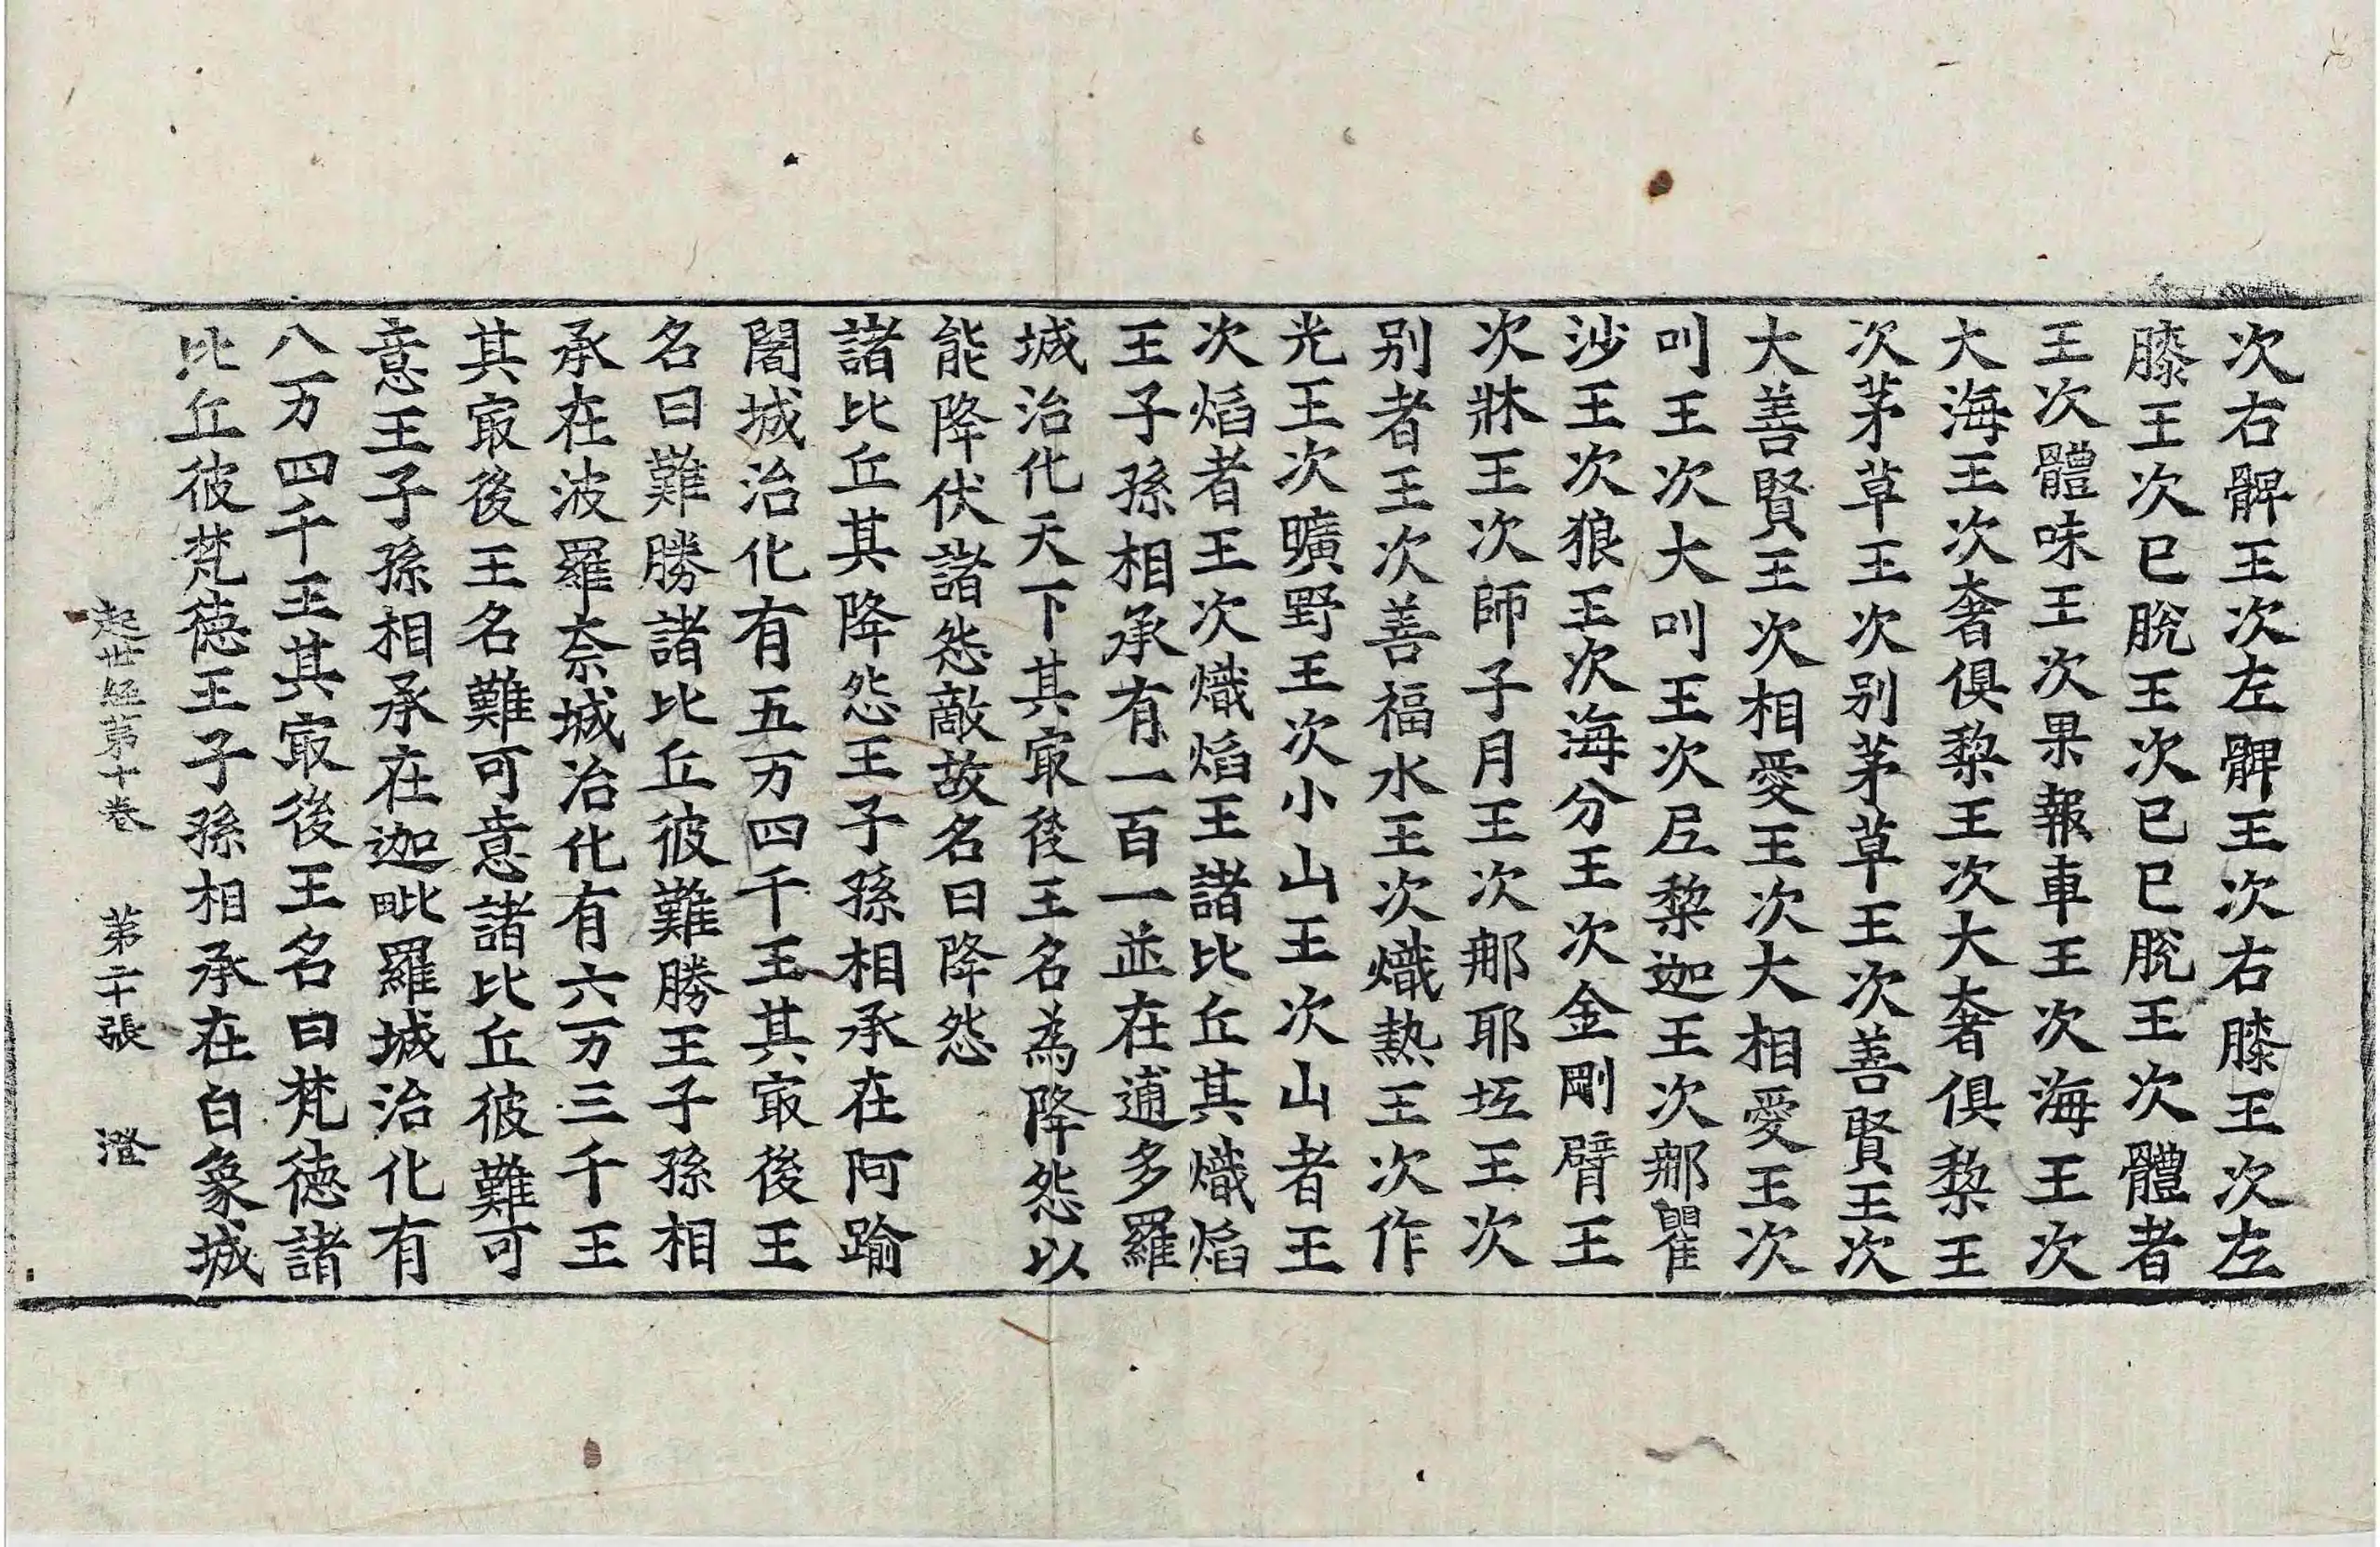 次右髀王次左髀王次右膝王次左
膝王次已脫王次已已脫王次體者
王次體味王次果報車王次海王次
大海王次奢俱黎王次大奢俱黎王
次茅草王次別茅草王次善賢王次
大善賢王次相愛王次大相愛王次
叫王次大叫王次𡰱黎迦王次那瞿
沙王次狼王次海分王次金剛臂王
次牀王次師子月王次那耶坻王次
別者王次善福水王次熾熱王次作
光王次曠野王次小山王次山者王
次焰者王次熾焰王諸比丘其熾焰
王子孫相承有一百一並在逋多羅
城治化天下其㝡後王名為降怨以
能降伏諸怨敵故名曰降怨
諸比丘其降怨王子孫相承在阿踰
闍城治化有五万四千王其㝡後王
名曰難勝諸比丘彼難勝王子孫相
承在波羅奈城治化有六万三千王
其㝡後王名難可意諸比丘彼難可
意王子孫相承在迦毗羅城治化有
八万四千王其㝡後王名曰梵德諸
比丘彼梵德王子孫相承在白象城
起世経第十卷 第二十張 澄